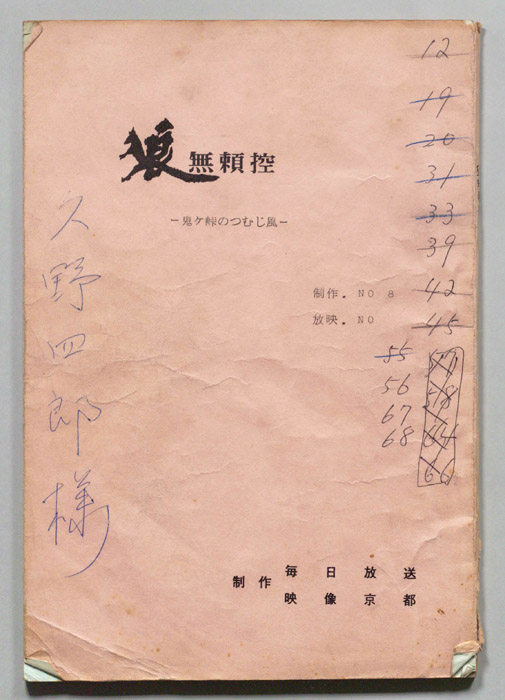 狼無頼控
−鬼ケ峠のつむじ風−
制作．NO 8
放映．NO
久野四郎様
12
19
20
31
33
39
42
45
55
56
67
68
57
58
64
66
制作 毎日放送
映像京都